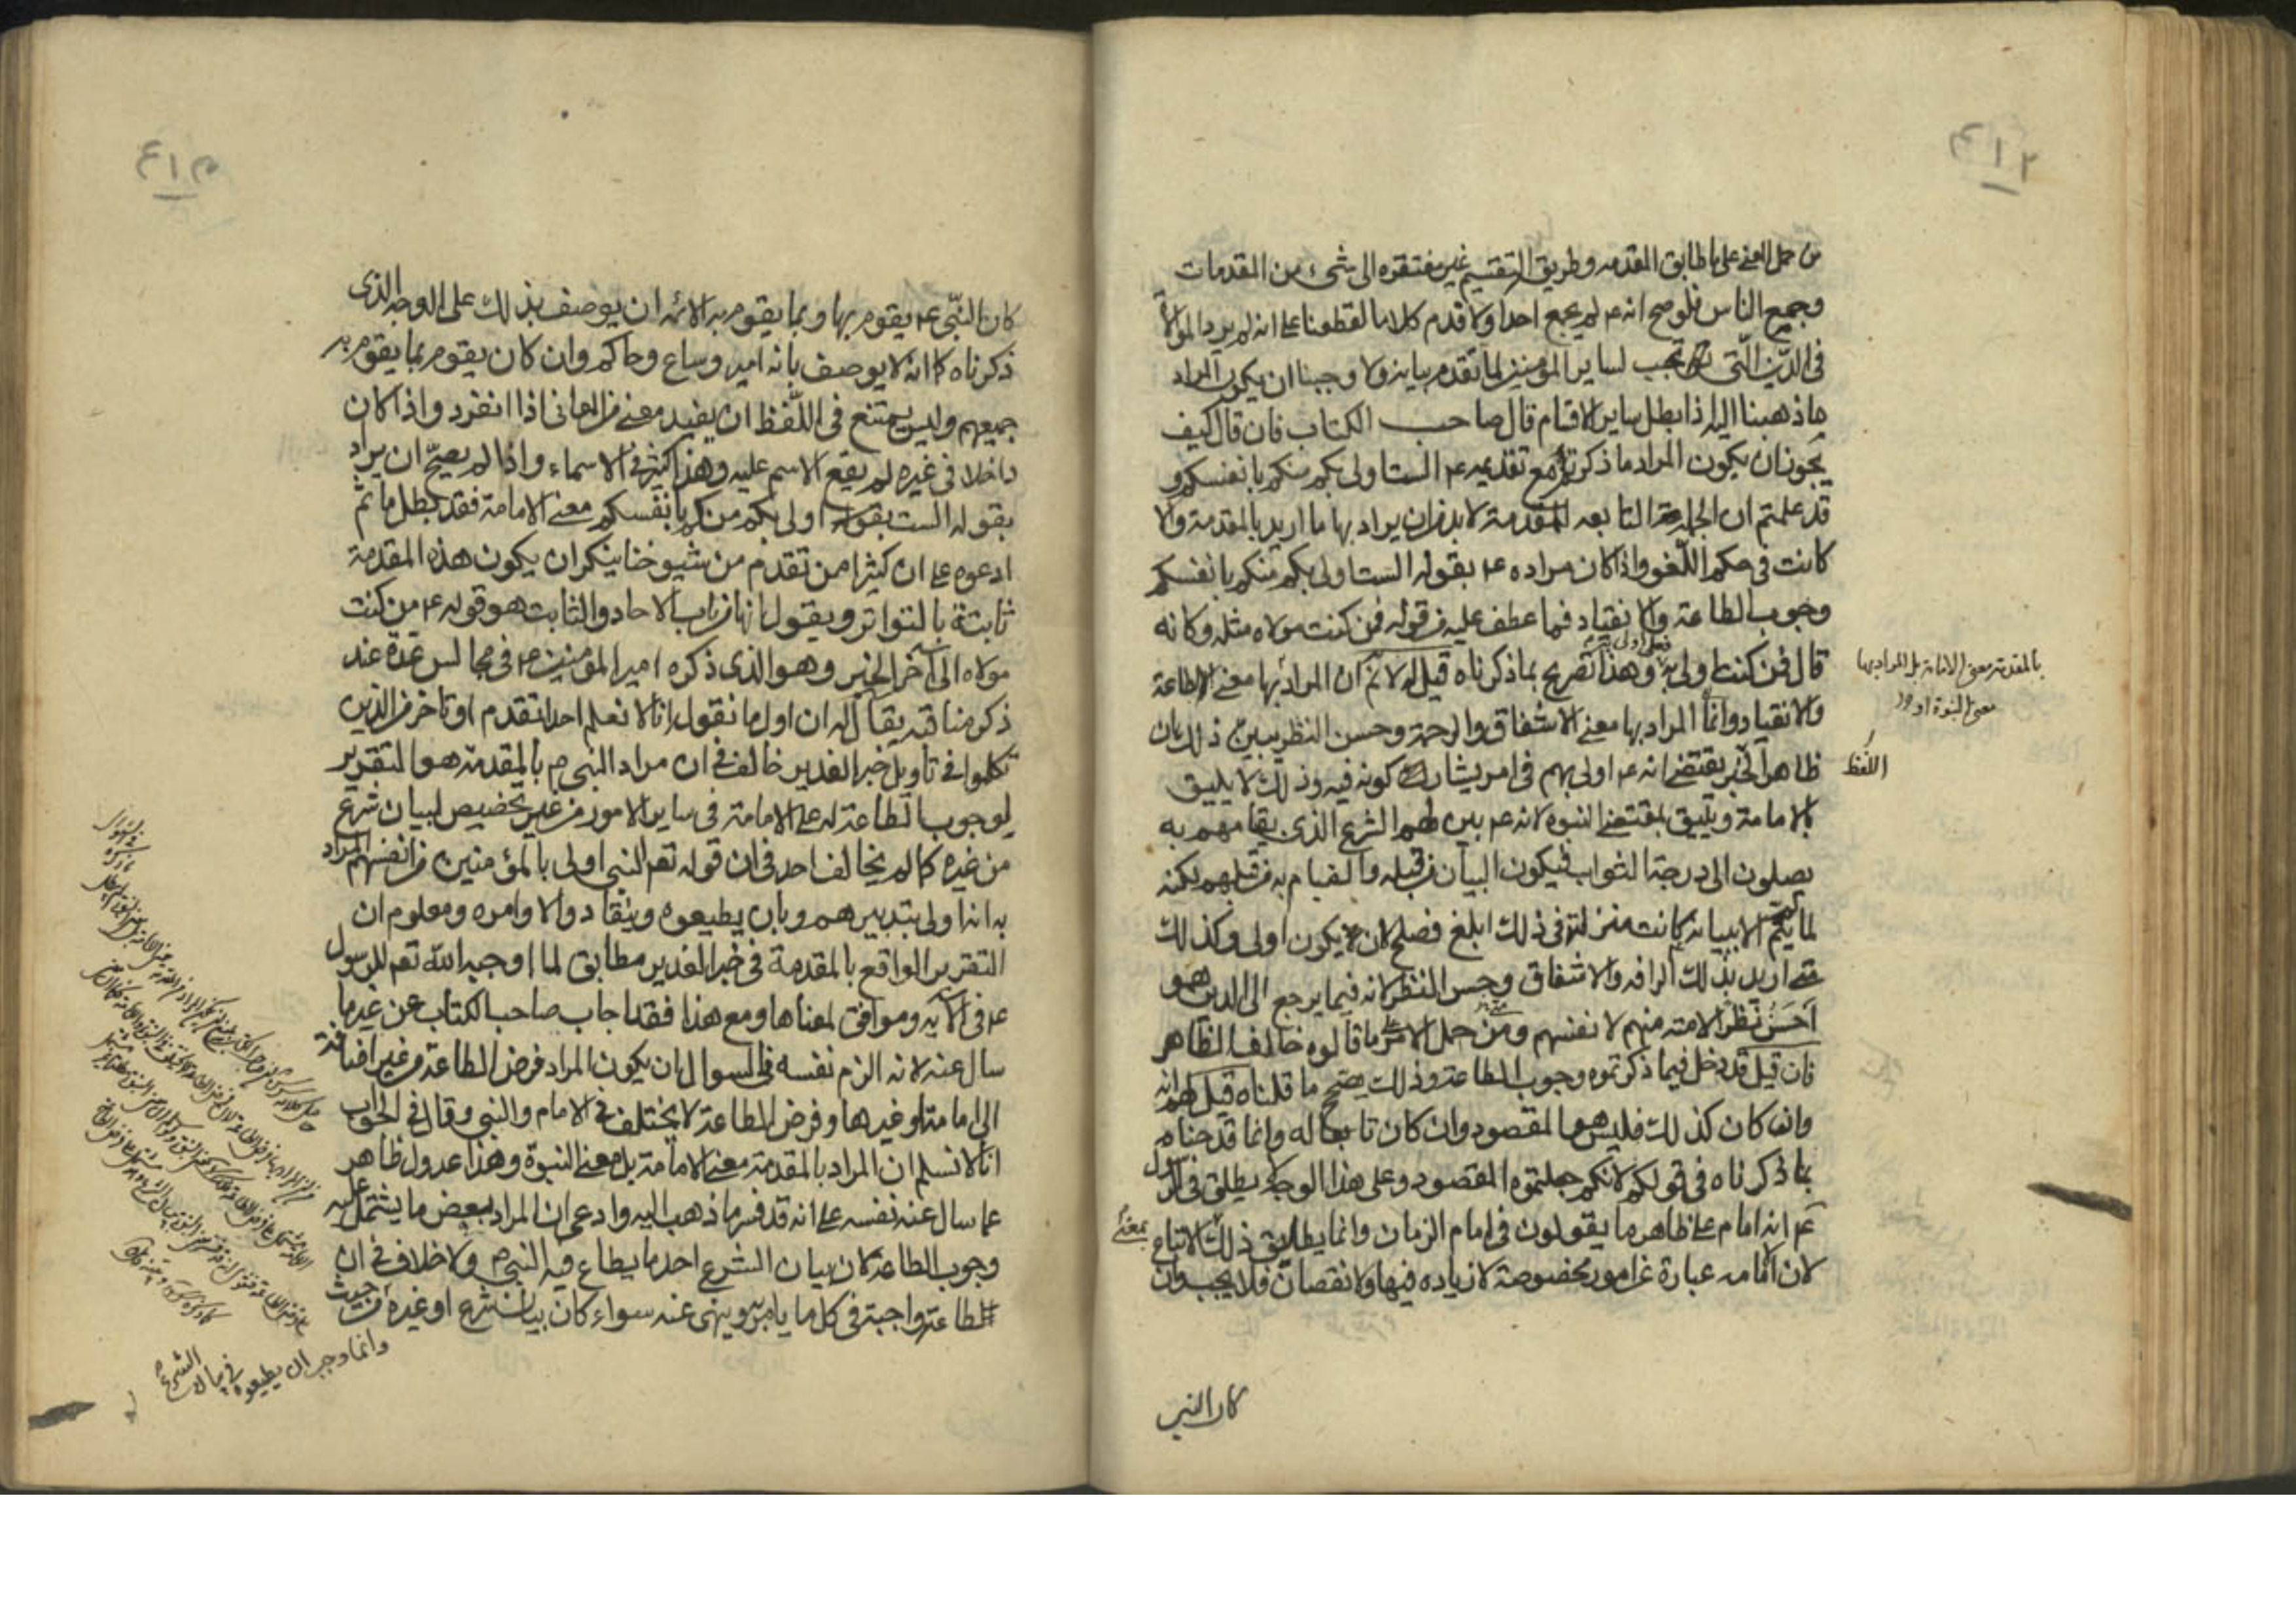 ٤١٢
من حمل المعنى على ما طابق المقدمه وطريق التقسيم غير مفتقره الى شىء من المقدمات
وجمع الناس فلو صح انه ع لم يجمع احدا ولا قدم كلاما لقطعنا على انه لم يرد الموالاة
فى الدين التى تجب لساير المؤمنين لما تقدم بيانه ولا وجبنا ان يكون المراد
ما ذهبنا اليه اذا بطل ساير الاقسام قال صاحب الكتاب فان قال كيف
يجوز ان يكون المراد ما ذكرتم مع تقديمه ع الست اولى بكم منكم بانفسكم و
قد علمتم ان الجملة التابعه للمقدمة لا بد من ان يراد بها ما اريد بالمقدمة والا
كانت فى حكم اللغو واذا كان مراده ع بقوله الست اولى بكم منكم بانفسكم
وجوب الطاعة والانقياد فما عطف عليه من قوله فمن كنت مولاه مثله وكانه
قال فمن كنت اولى به فعلى اولى به وهذا تصريح بما ذكرناه قيل له لا نم ان المراد بها معنى الاطاعة
بالمقدمة معنى الامامة بل المراد بها
معنى النبوة او
والانقياد وانما المراد بها معنى الاشفاق والرحمة وحسن النظر يبين ذلك بان
ظاهر الخبر يقتضى انه ع اولى بهم فى امر يشارك كونه فيه وذلك لا يليق
اللفظ
بالامامة ويليق بمقتضى النبوة لانه ع بين لهم الشرع الذى بقيامهم به
يصلون الى درجة الثواب فيكون البيان من قبله والقيام به من قبلهم لكنه
لما لم يتم الا ببيانه كانت منزلته فى ذلك ابلغ فصلح لان يكون اولى وكذلك
متى اريد بذلك الرافه والاشفاق وحسن النظر لانه فيما يرجع الى الدين هو
احسن نظر الامته منهم لانفسهم ومن حمل الامر على ما قالوه خالف الظاهر
فان قيل قد دخل فيما ذكرتموه وجوب الطاعة وذلك يصحح ما قلناه قيل لهم انه
وان كان كذلك فليس هو المقصود وان كان تابعا له وانما قدحناه
بما ذكرناه فى قولكم لانكم جعلتموه المقصود وعلى هذا الوجه لا يطلق فى الرسول
ع انه امام على ظاهر ما يقولون فى امام الزمان وانما يطلق ذلك الاتباع
بمعنى
لان الامامه عبارة عن امور مخصوصة لا زياده فيها ولا نقصان فلا يجب وان
كان النبى
٤١٣
كان النبى ع يقوم بها وبما يقوم به الائمه ان يوصف بذلك على الوجه الذى
ذكرناه كما انه لا يوصف بانه امير وساع وحاكم وان كان يقوم بما يقوم به
جميعهم وليس يمتنع فى اللفظ ان يفيد معنى من المعانى اذا انفرد واذا كان
داخلا فى غيره لم يقع الاسم عليه وهذا كثير فى الاسماء واذا لم يصح ان يراد
بقوله الست اولى بكم منكم بانفسكم معنى الامامة فقد بطل ما تم
ادعوه على ان كثيرا ممن تقدم من شيوخنا ينكر ان يكون هذه المقدمة
ثابتة بالتواتر ويقول انها من باب الاحاد والثابت هو قوله ع من كنت
مولاه الى آخر الخبر وهو الذى ذكره امير المؤمنين ع فى مجالس عدة عند
ذكر مناقبه يقال له ان اول ما نقول انا لا نعلم احدا تقدم او تاخر من الذين
تكلموا فى تاويل خبر الغدير خالف فى ان مراد النبى ص بالمقدمة هو التقرير
لوجوب الطاعة له على الامامة فى ساير الامور من غير تخصيص لبيان شرع
من غيره كما لم يخالف احد فى ان قوله تعم النبى اولى بالمؤمنين من انفسهم المراد
به انه اولى بتدبيرهم وبان يطيعوه وينقادوا لاوامره ومعلوم ان
التقرير الواقع بالمقدمة فى خبر الغدير مطابق لما اوجبه الله تعم للرسول
ع فى الآيه وموافق لمعناها ومع هذا فقد اجاب صاحب الكتاب عن غير ما
سال عنه لانه الزم نفسه فى السوال ان يكون المراد فرض الطاعة من غير اضافة
الى امامة او غيرها وفرض الطاعة لا يختلف فى الامام والنبى وقال فى الجواب
انا لا نسلم ان المراد بالمقدمة معنى الامامة بل معنى النبوة وهذا عدول ظاهر
عما سال عنه نفسه على انه قد فسر ما ذهب اليه وادعى ان المراد ببعض ما يشتمل عليه
وجوب الطاعة لان بيان الشرع احد ما يطاع فيه النبى ص ولا خلاف فى ان
الطاعة واجبة فى كل ما يامر به وينهى عنه سواء كان بيان شرع او غيره من حيث
وانما وجب ان يطيعوه فى بيان الشرع